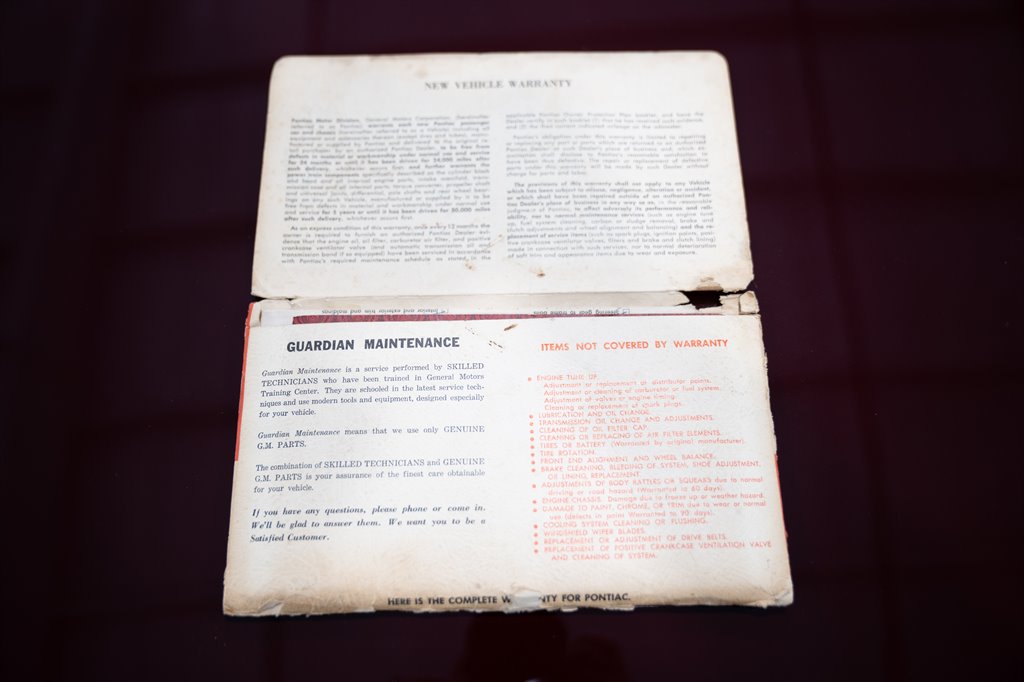 NEW VEHICLE WARRANTY
Pontiac Motor Division, General Motors Corporation, (hereinafter
referred to as Pontiac) warrants each new Pontiac passenger
car and chassis (hereinafter referred to as a Vehicle) including all
equipment and accessories thereon (except tires and tubes), manu-
factured or supplied by Pontiac and delivered to the original re-
tail purchaser by an authorized Pontiac Dealer, to be free from
defects in material or workmanship under normal use and service
for 24 months or until it has been driven for 24,000 miles after
such delivery, whichever occurs first and further warrants the
power train components specifically described as the cylinder block
and all internal engine parts, intake manifold,
mission case and all internal parts, torque converter, propeller shaft
and universal joints, differential, axle shafts and rear wheel bear-
ings on any such Vehicle, manufactured or supplied by it to be
free from defects in material and workmanship under normal use
and service for 5 years or until it has been driven for 50,000 miles
after such delivery, whichever occurs first.
As an express condition of this warranty, once every 12 months the
owner is required to furnish an authorized Pontiac Dealer evi-
dence that the engine oil, oil filter, carburetor air filter, and positive
crankcase ventilator valve (and automatic transmission oil and
transmission band if so equipped) have been serviced in accordance
with Pontiac's required maintenance schedule as stated in the
applicable Pontiac Owner Protection Plan booklet, and have the
Dealer certify in such booklet (1) that he has received such evidence,
and (2) the then current indicated mileage on the odometer.
Pontiac's obligation under this warranty is limited to repairing
or replacing any part or parts which are returned to an authorized
Pontiac Dealer at such Dealer's place of business and, which ex-
amination shall disclose to Pontiac's reasonable satisfaction to
have been thus defective. The repair or replacement of defective
parts under this warranty will be made by such Dealer without
charge for parts and labor.
The provisions of this warranty shall not apply to any Vehicle
which has been subject to misuse, negligence, alteration or accident,
or which shall have been repaired outside of an authorized Pon-
tiac Dealer's place of business in any way so as, in the reasonable
judgment of Pontiac, to affect adversely its performance and reli-
ability, nor to normal maintenance services (such as engine tune
up, fuel system cleaning, carbon or sludge removal, brake and
clutch adjustments and wheel alignment and balancing) and the re-
placement of service items (such as spark plugs, ignition points, posi-
tive crankcase ventilator valves, filters and brake and clutch lining)
made in connection with such services, nor to normal deterioration
of soft trim and appearance items due to wear and exposure.
Steering gear to frame bolts
Interior and exterior trim and moldings
GUARDIAN MAINTENANCE
Guardian Maintenance is a service performed by SKILLED
TECHNICIANS who have been trained in General Motors
Training Center. They are schooled in the latest service tech-
niques and use modern tools and equipment, designed especially
for your vehicle.
Guardian Maintenance means that we use only GENUINE
G.M. PARTS.
The combination of SKILLED TECHNICIANS and GENUINE
G.M. PARTS is your assurance of the finest care obtainable
for your vehicle.
If you have any questions, please phone or come in.
We'll be glad to answer them. We want you to be a
Satisfied Customer.
ITEMS NOT COVERED BY WARRANTY
• ENGINE TUNE UP.
Adjustment or replacement of distributor points.
Adjustment or cleaning of carburetor or fuel system.
Adjustment of valves or engine timing.
Cleaning or replacement of spark plugs.
• LUBRICATION AND OIL CHANGE.
• TRANSMISSION OIL CHANGE AND ADJUSTMENTS.
• CLEANING OF OIL FILTER CAP.
• CLEANING OR REPLACING OF AIR FILTER ELEMENTS.
• TIRES OR BATTERY (Warranted by original manufacturer).
• TIRE ROTATION.
• FRONT END ALIGNMENT AND WHEEL BALANCE.
• BRAKE CLEANING, BLEEDING OF SYSTEM, SHOE ADJUSTMENT,
OR LINING REPLACEMENT.
• ADJUSTMENTS OF BODY RATTLES OR SQUEAKS due to normal
driving or road hazard (Warranted to 60 days).
• ENGINE CHASSIS. Damage due to freeze up or weather hazard.
• DAMAGE TO PAINT, CHROME, OR TRIM due to wear or normal
use (defects in paint Warranted to 90 days).
• COOLING SYSTEM CLEANING OR FLUSHING.
• WINDSHIELD WIPER BLADES.
• REPLACEMENT OR ADJUSTMENT OF DRIVE BELTS.
• REPLACEMENT OF POSITIVE CRANKCASE VENTILATION VALVE
AND CLEANING OF SYSTEM.
HERE IS THE COMPLETE W NTY FOR PONTIAC.